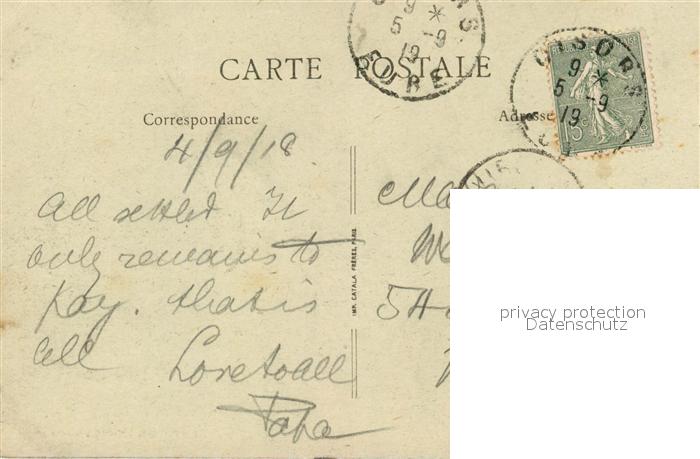 CARTE POSTALE
GISORS
9 *
5 -9
19
EURE
GISORS
9 *
5 -9
19
15c
Correspondance
Adresse
4/9/18
All settled It
only remains to
pay. that is
all Love to all
Papa
IMP. CATALA FRÈRES, PARIS
Ma
54
privacy protection
Datenschutz